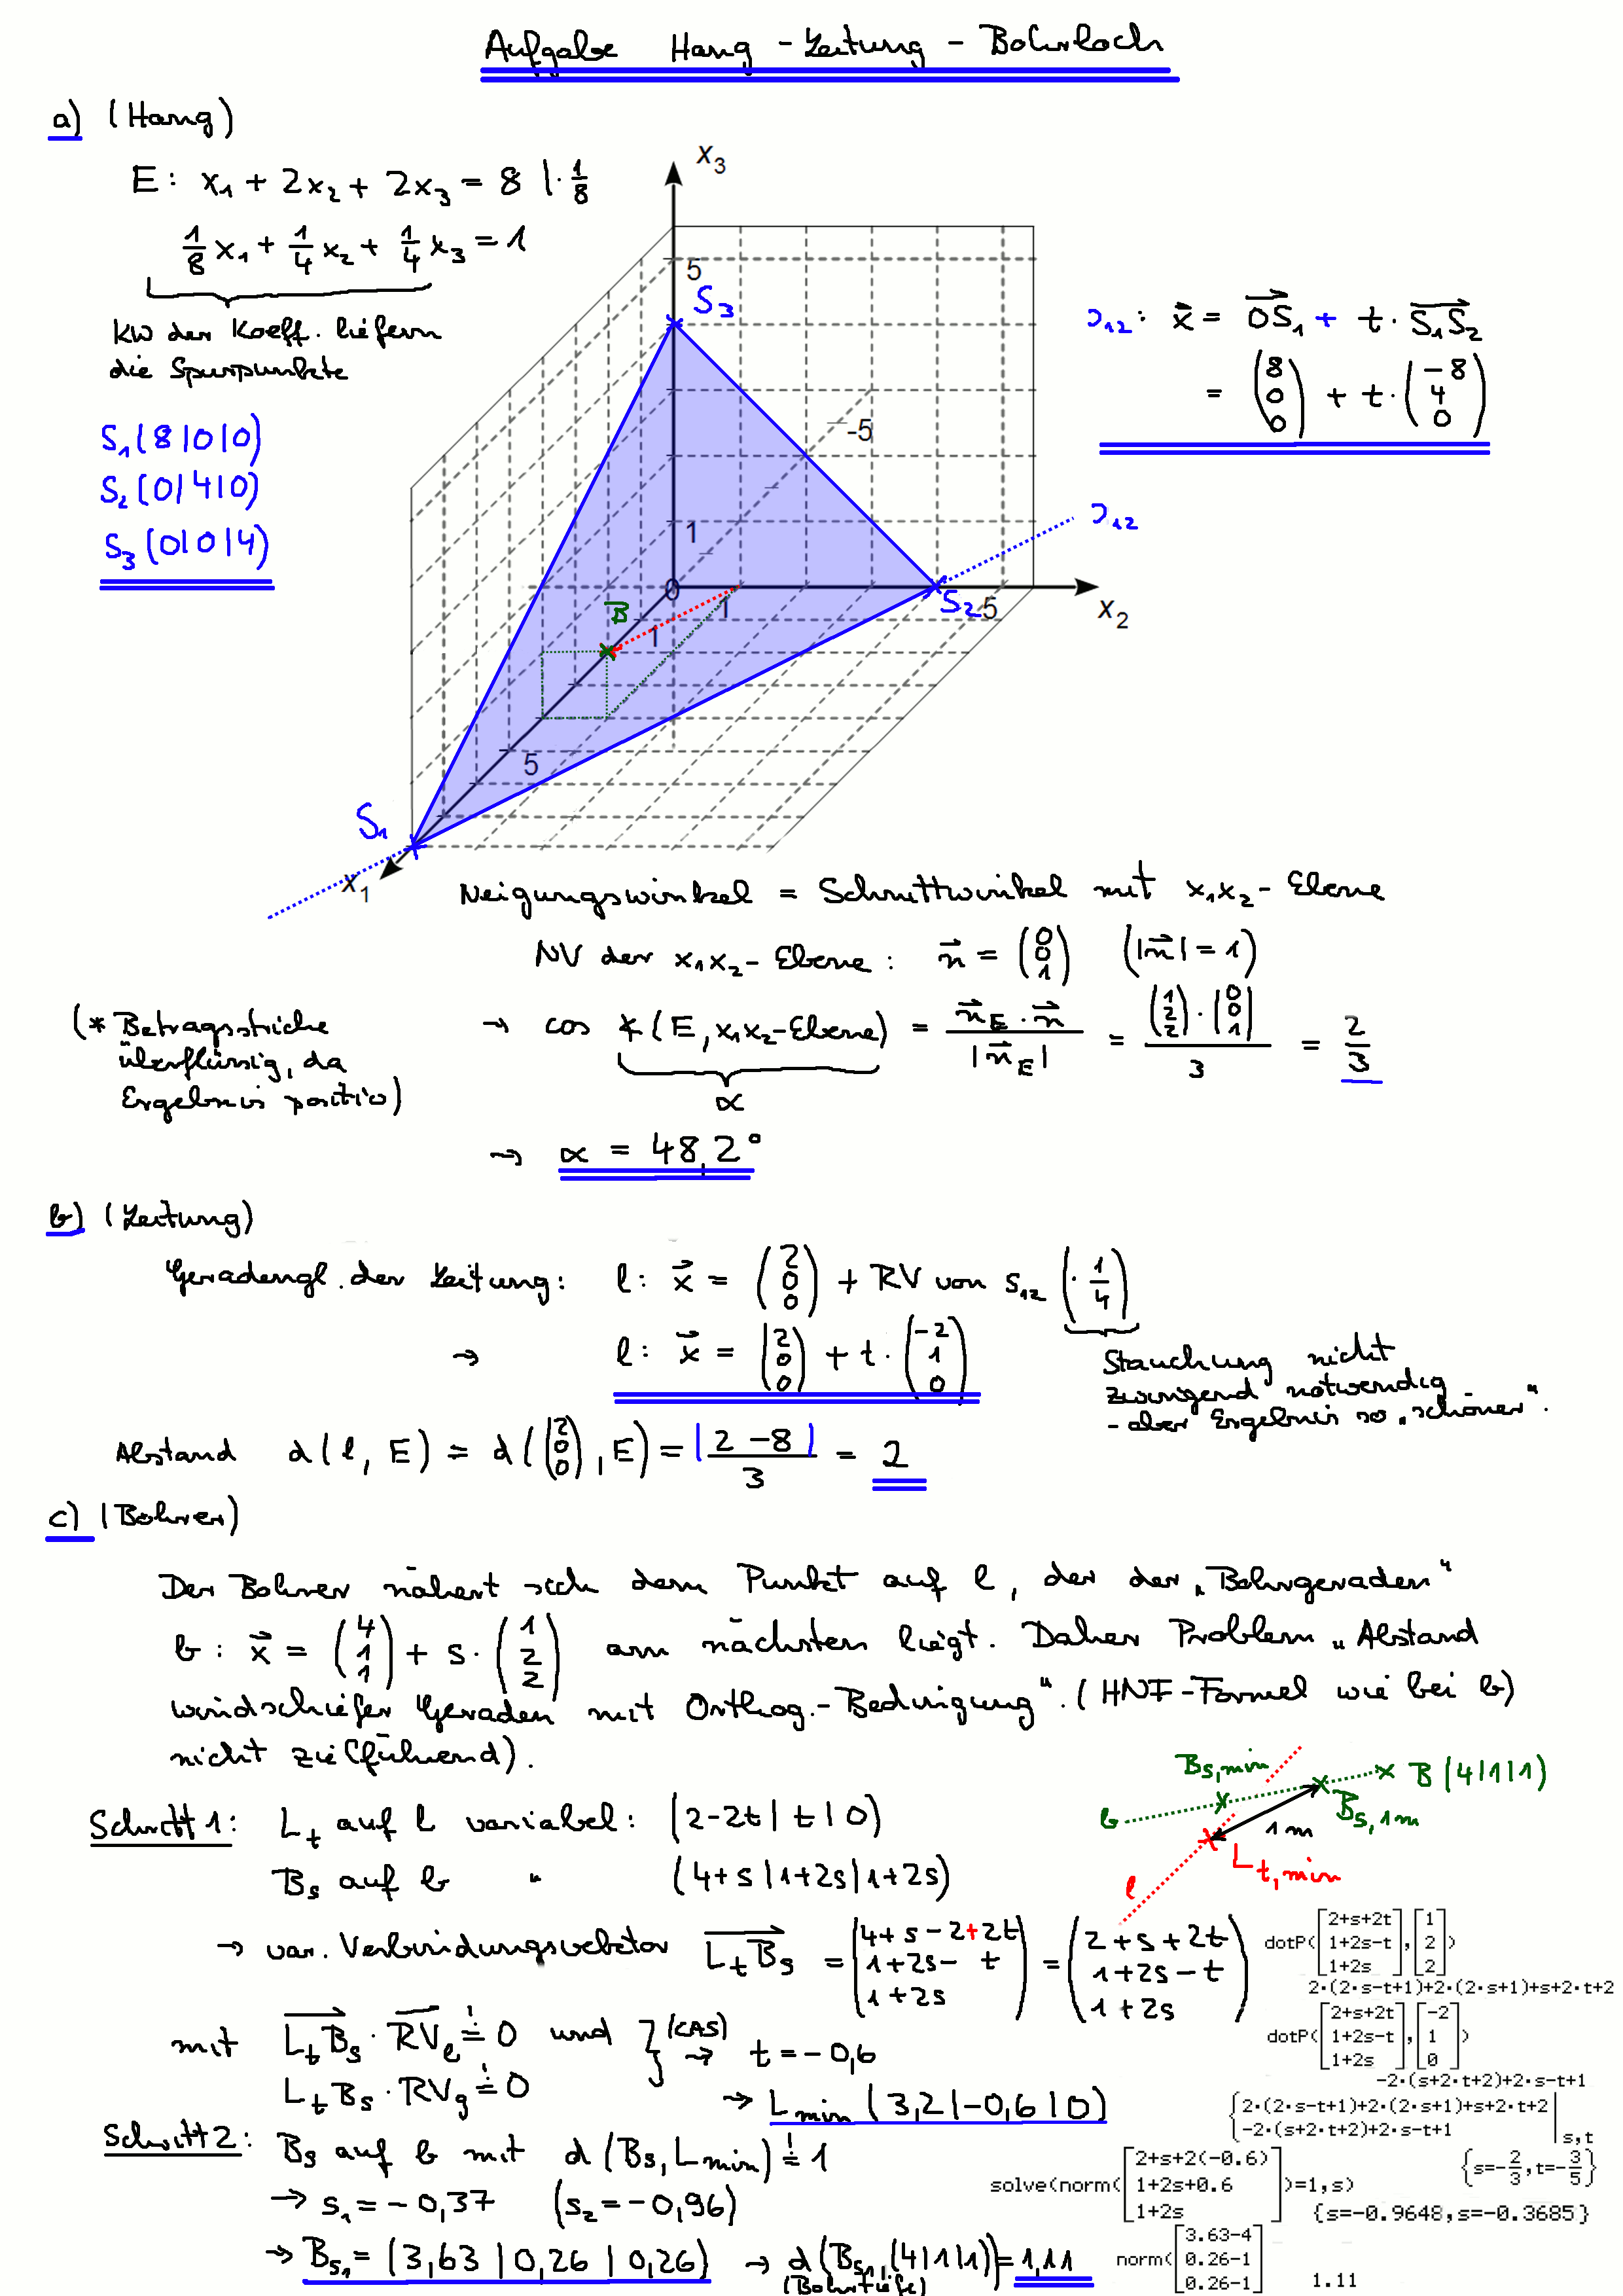 Aufgabe Hang - Leitung - Bohrloch
a) (Hang)
E: x₁ + 2x₂ + 2x₃ = 8 | · 1/8
1/8 x₁ + 1/4 x₂ + 1/4 x₃ = 1
KW der Koeff. liefern
die Spurpunkte
S₁(8|0|0)
S₂(0|4|0)
S₃(0|0|4)
x₃
5
S₃
-5
1
0
1
B
1
S₂
5
x₂
s₁₂
5
S₁
x₁
s₁₂: x⃗ = OS₁ + t · S₁S₂
= (8 0 0) + t · (-8 4 0)
Neigungswinkel = Schnittwinkel mit x₁x₂-Ebene
NV der x₁x₂-Ebene: n⃗ = (0 0 1) (|n⃗| = 1)
(* Betragsstriche
überflüssig, da
Ergebnis positiv)
→ cos ∡(E, x₁x₂-Ebene) = n⃗_E · n⃗ / |n⃗_E| = (1 2 2) · (0 0 1) / 3 = 2/3
α
→ α = 48,2°
b) (Leitung)
Geradengl. der Leitung: l: x⃗ = (2 0 0) + RV von s₁₂ (· 1/4)
→ l: x⃗ = (2 0 0) + t · (-2 1 0)
Stauchung nicht
zwingend notwendig
- aber Ergebnis so „schöner".
Abstand d(l, E) = d((2 0 0), E) = |2 - 8| / 3 = 2
c) (Bohrer)
Der Bohrer nähert sich dem Punkt auf l, der der „Bohrgeraden"
b: x⃗ = (4 1 1) + s · (1 2 2) am nächsten liegt. Daher Problem „Abstand
windschiefer Geraden mit Orthog.-Bedingung". (HNF-Formel wie bei b)
nicht zielführend).
B_s,min
B(4|1|1)
b
B_s,1m
1m
L_t,min
l
Schritt 1: L_t auf l variabel: (2-2t | t | 0)
B_s auf b " (4+s | 1+2s | 1+2s)
→ var. Verbindungsvektor L_tB_s = (4+s-2+2t 1+2s-t 1+2s) = (2+s+2t 1+2s-t 1+2s)
mit L_tB_s · RV_l != 0 und } (CAS) → t = -0,6
L_tB_s · RV_g != 0
→ L_min (3,2 | -0,6 | 0)
dotP([2+s+2t 1+2s-t 1+2s],[1 2 2])
2·(2·s-t+1)+2·(2·s+1)+s+2·t+2
dotP([2+s+2t 1+2s-t 1+2s],[-2 1 0])
-2·(s+2·t+2)+2·s-t+1
{2·(2·s-t+1)+2·(2·s+1)+s+2·t+2
-2·(s+2·t+2)+2·s-t+1 | s,t
{s=-2/3, t=-3/5}
Schritt 2: B_s auf b mit d(B_s, L_min) != 1
→ s₁ = -0,37 (s₂ = -0,96)
→ B_s₁ = (3,63 | 0,26 | 0,26) → d(B_s₁, (4|1|1)) = 1,11
(Bohrtiefe)
solve(norm([2+s+2(-0.6) 1+2s+0.6 1+2s])=1,s)
{s=-0.9648,s=-0.3685}
norm([3.63-4 0.26-1 0.26-1]
1.11